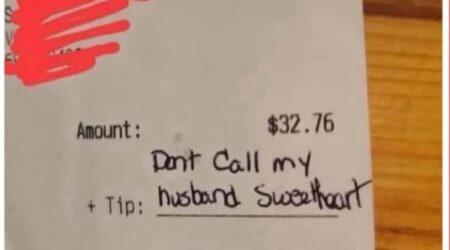 Amount: $32.76
Dont Call my
+ Tip: husband Sweetheart